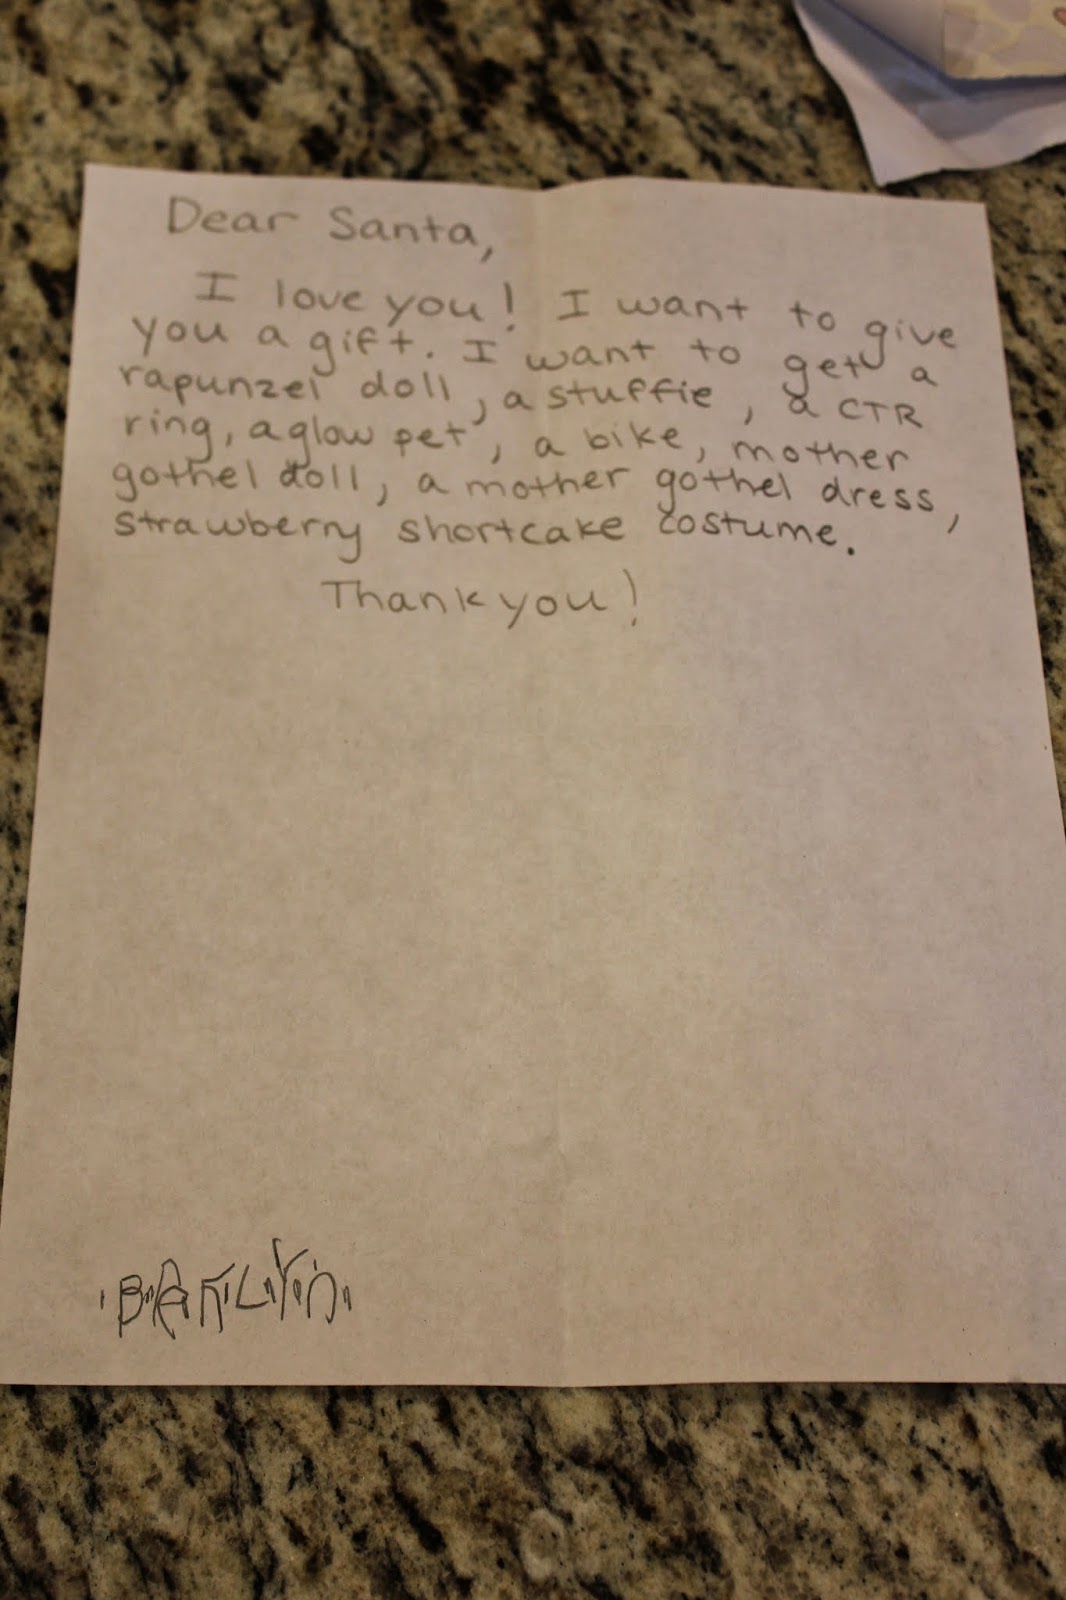 Dear Santa,
I love you! I want to give
you a gift. I want to get a
rapunzel doll, a stuffie, a CTR
ring, a glow pet, a bike, mother
gothel doll, a mother gothel dress,
strawberry shortcake costume.
Thank you!